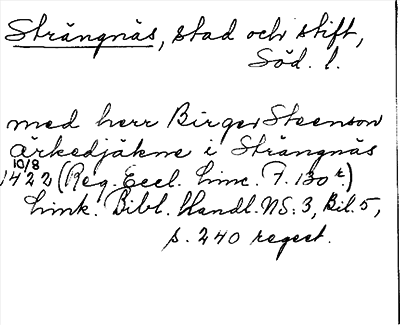 Strängnäs, stad och stift,
Söd. l.
med herr Birger Steenson
ärkedjäkne i Strängnäs
10/8
1422 (Reg. Eccl. Linc. F. 130 r.)
Link. Bibl. Handl. NS. 3, Bil. 5,
s. 240 regest.